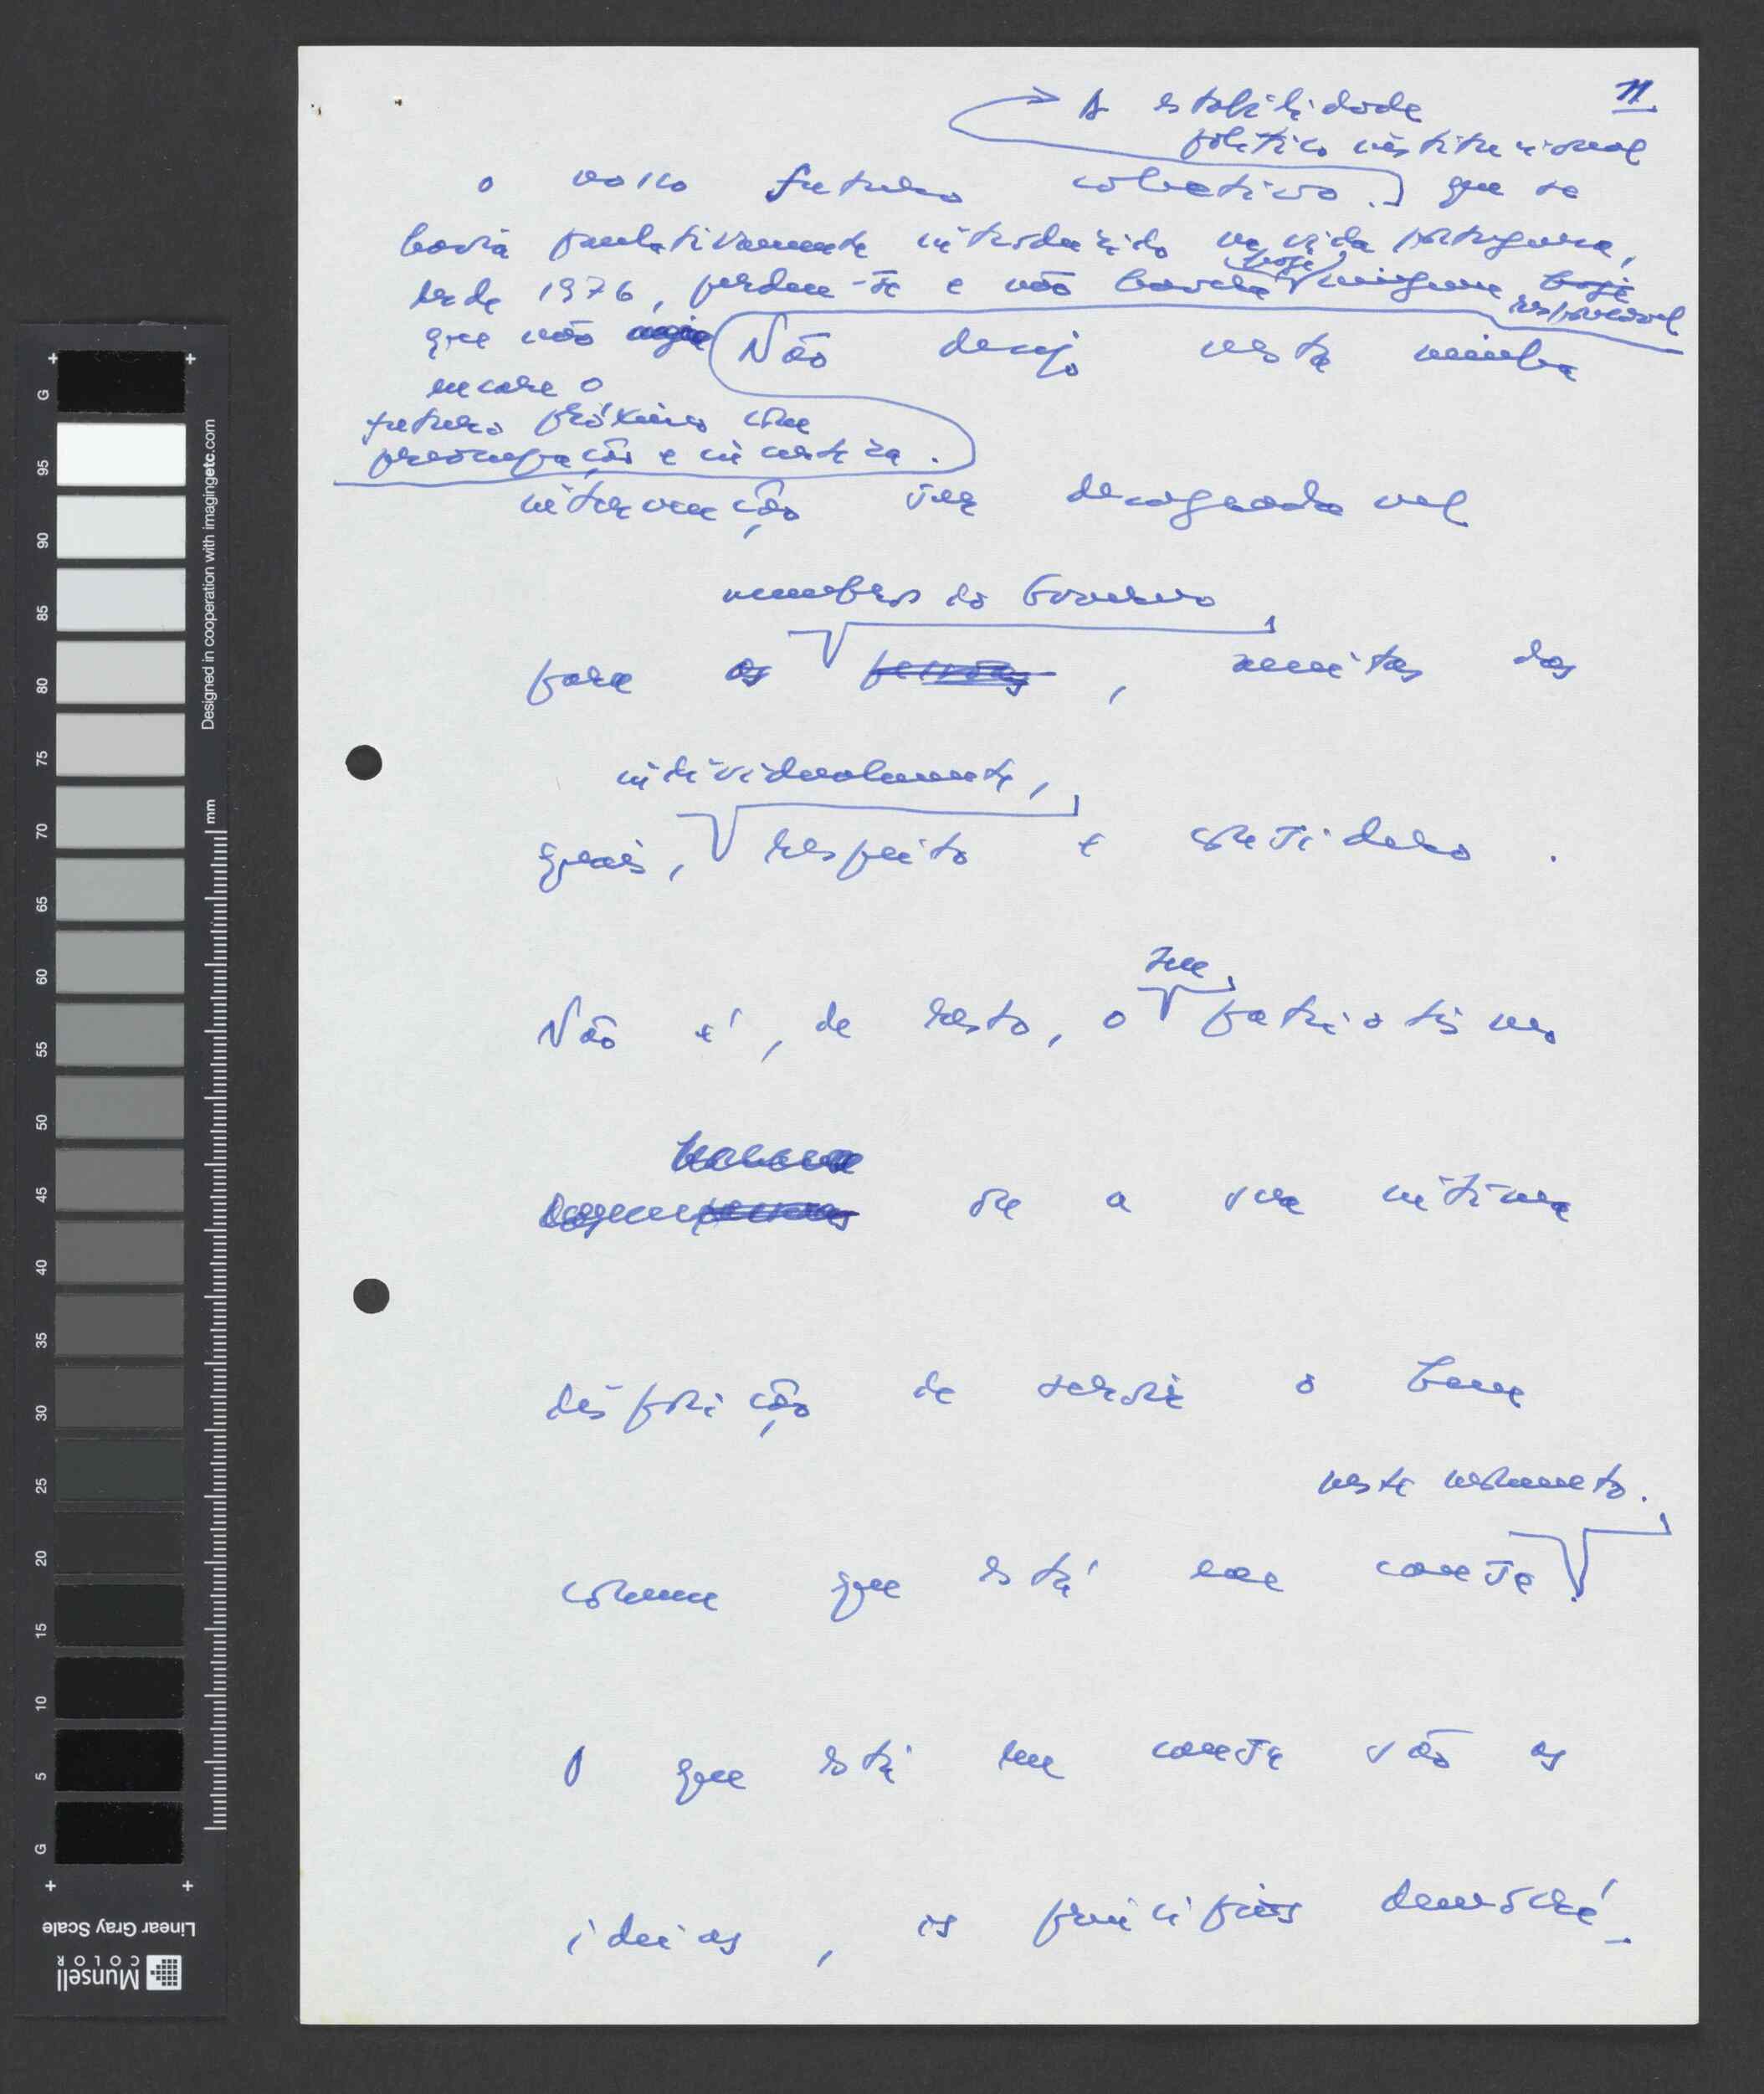 11
A estabilidade
político institucional
o nosso futuro colectivo. que se
havia paulativamente introduzido na vida portuguesa,
desde 1976, perdeu-se e não haverá hoje ninguém hoje
responsável
que não
encare o
futuro próximo com
preocupação e incerteza.
Não desejo nesta minha
intervenção ser desagradável
membros do Governo,
para os pessoas, muitos dos
individualmente,
quais, respeito e considero.
seu
Não é, de resto, o patriotismo
ou a sua íntima
disposição de servir o bem
neste momento.
comum que está em causa.
O que está em causa são as
ideias, os princípios democrá-
G
95
90
85
80
75
70
65
60
55
50
45
40
35
30
25
20
15
10
5
G
mm
Designed in cooperation with imagingetc.com
Linear Gray Scale
Munsell
COLOR